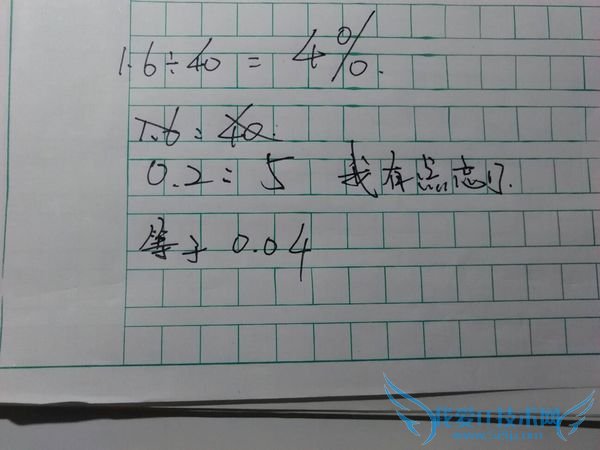 1.6÷40 = 4%.
1.6:40:
0.2:5 我有点忘了.
等于 0.04
我爱IT技术网